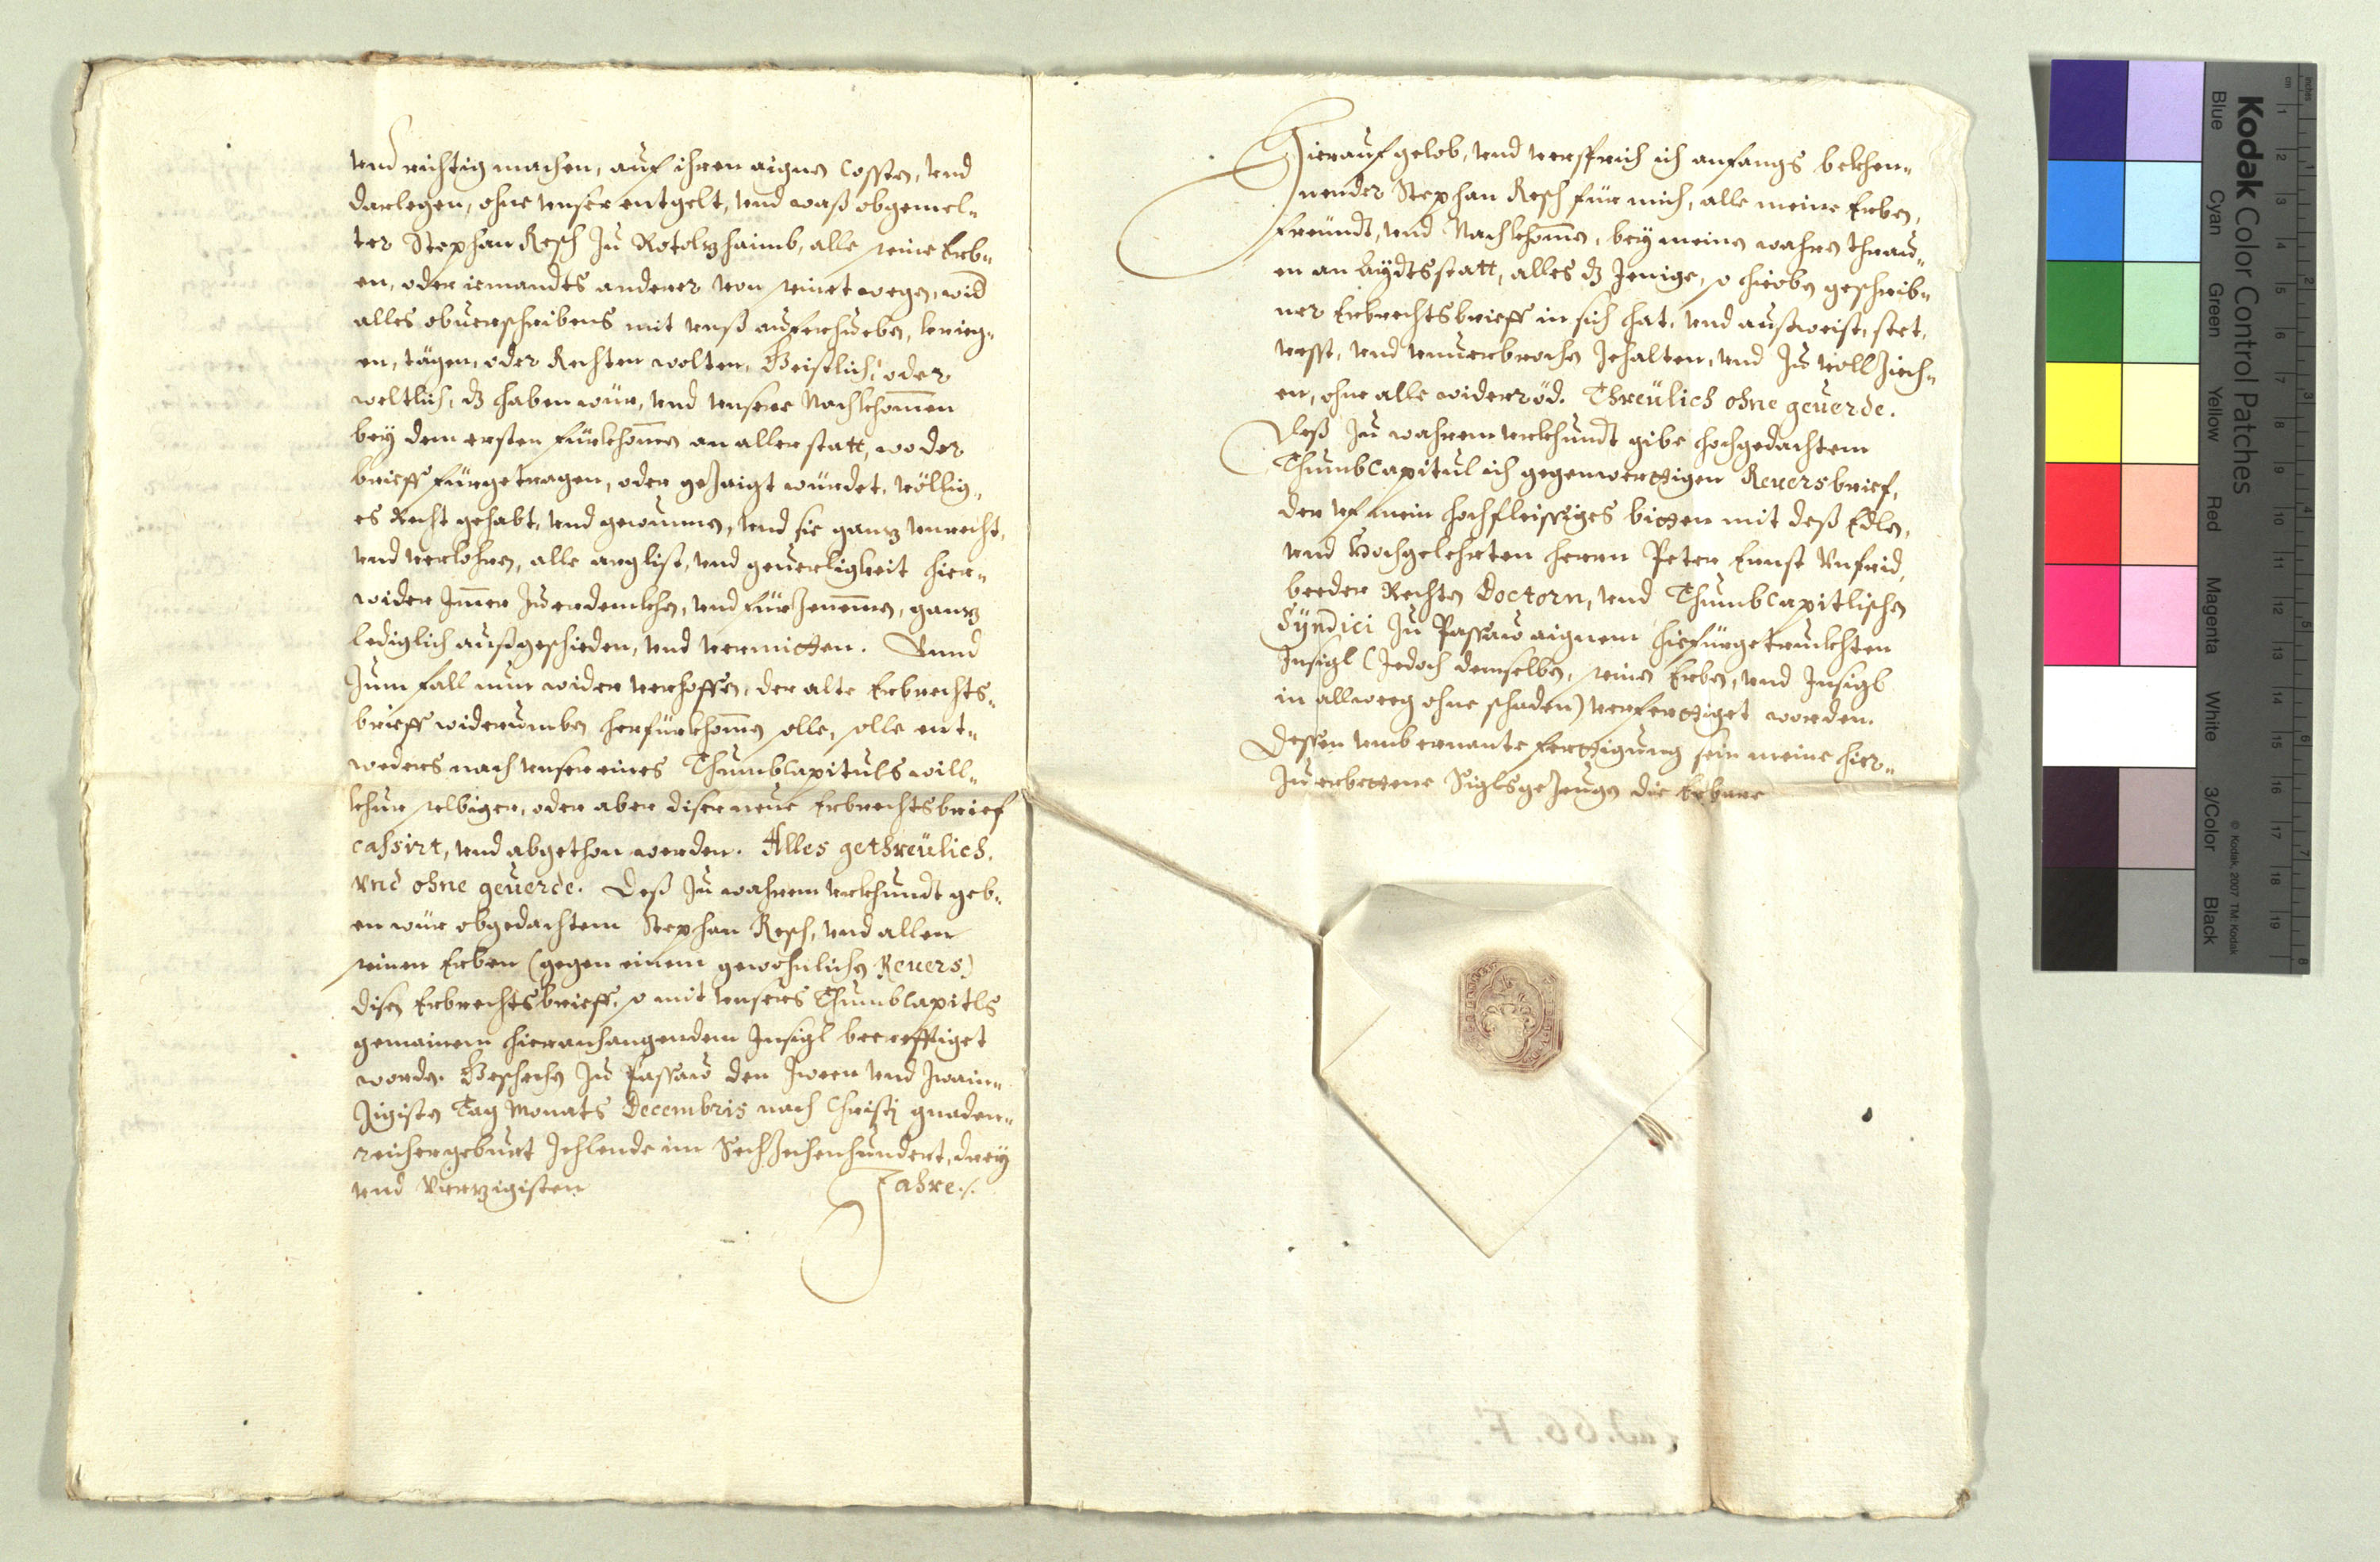 und richtig machen, auf ihren aignen Cossten, und
darlegen, ohne unser entgelt, und waß obgemel„
ter Stephan Resch zu Rotolzhaimb, alle seine Erb„
en, oder iemandts anderer von seinet wegen, wid
alles obuerschribens mit unß aufershueben, krieg„
en, tägen, oder Rechten wolten, Geistlich, oder
weltlich, dz haben wür, und unsere Nachkhomen
bey dem ersten fürkhomen an aller statt, wo der
brieff fürgetragen, oder gezaigt würdet, völlig„
es Recht gehabt, und gewunnen, und sie ganz unrecht,
und verlohren, alle arglist, und geuerligkeit hier„
wider Imer zuerdenkhen, und fürzenemen, ganz
lediglich außgeschieden, und vermitten. Vnnd
zum fall nun wider verhoffen, der alte Erbrechts„
brieff widerumben herfürkhomen solle, solle ent„
weders nach unser eines Thumbcapituls will„
khur selbiger, oder aber diser neue Erbrechtsbrief
cassirt, und abgethon werden. Alles gethreülich,
vnd ohne geuerde. Deß zu wahrem urkhundt geb„
en wür obgedachtem Stephan Resch, und allen
seinen Erben (gegen einem gewohnlichen Reuers)
disen Erbrechtsbrieff, so mit unsers Thumbcapitls
gemainem hieranhangendem Insigl becrefftiget
worden. Geschechen zu Passaw den zween und zwain„
zigisten Tag Monats Decembris nach Christi gnaden„
reicher geburt zehlende im Sechzechenhundert, drey
und Vierzigisten Jahre ./.
Hierauf gelob, und versprich ich anfangs bekhen„
nender Stephan Resch für mich, alle meine Erben,
freundt, und Nachkhomen, bey meinen wahren threu„
en an Aydtsstatt, alles dz Jenige, so hieoben geschrib„
ner Erbrechtsbrieff in sich hat, und außweist, stet,
vesst, und unuerbrochen zehalten, und zu vollziech„
en, ohne alle widerröd. Threülich ohne geuerde.
Deß zu wahrem urkhundt gibe hochgedachtem
Thumbcapitul ich gegenwerttigen Reuersbrief,
der uf mein hochfleissiges bitten mit deß Edlen,
und Hochgelehrten herrn Peter Ernst Unfrid,
beeder Rechten Doctorn, und Thumbcapitlischen
Syndici zu Passaw aignem hiefürgetrukhten
Insigl (Jedoch demselben, seinen Erben, und Insigl
in allweeg ohne schaden) verferttiget worden.
Dessen umb ernante ferttigung sein meine hier„
zu erbettene Siglsgezeugen die Erbare
Kodak Color Control Patches
Blue Cyan Green Yellow Red Magenta White 3/Color Black
© Kodak, 2007 TM: Kodak
inches 1 2 3 4 5 6 7 8
cm 1 2 3 4 5 6 7 8 9 10 11 12 13 14 15 16 17 18 19